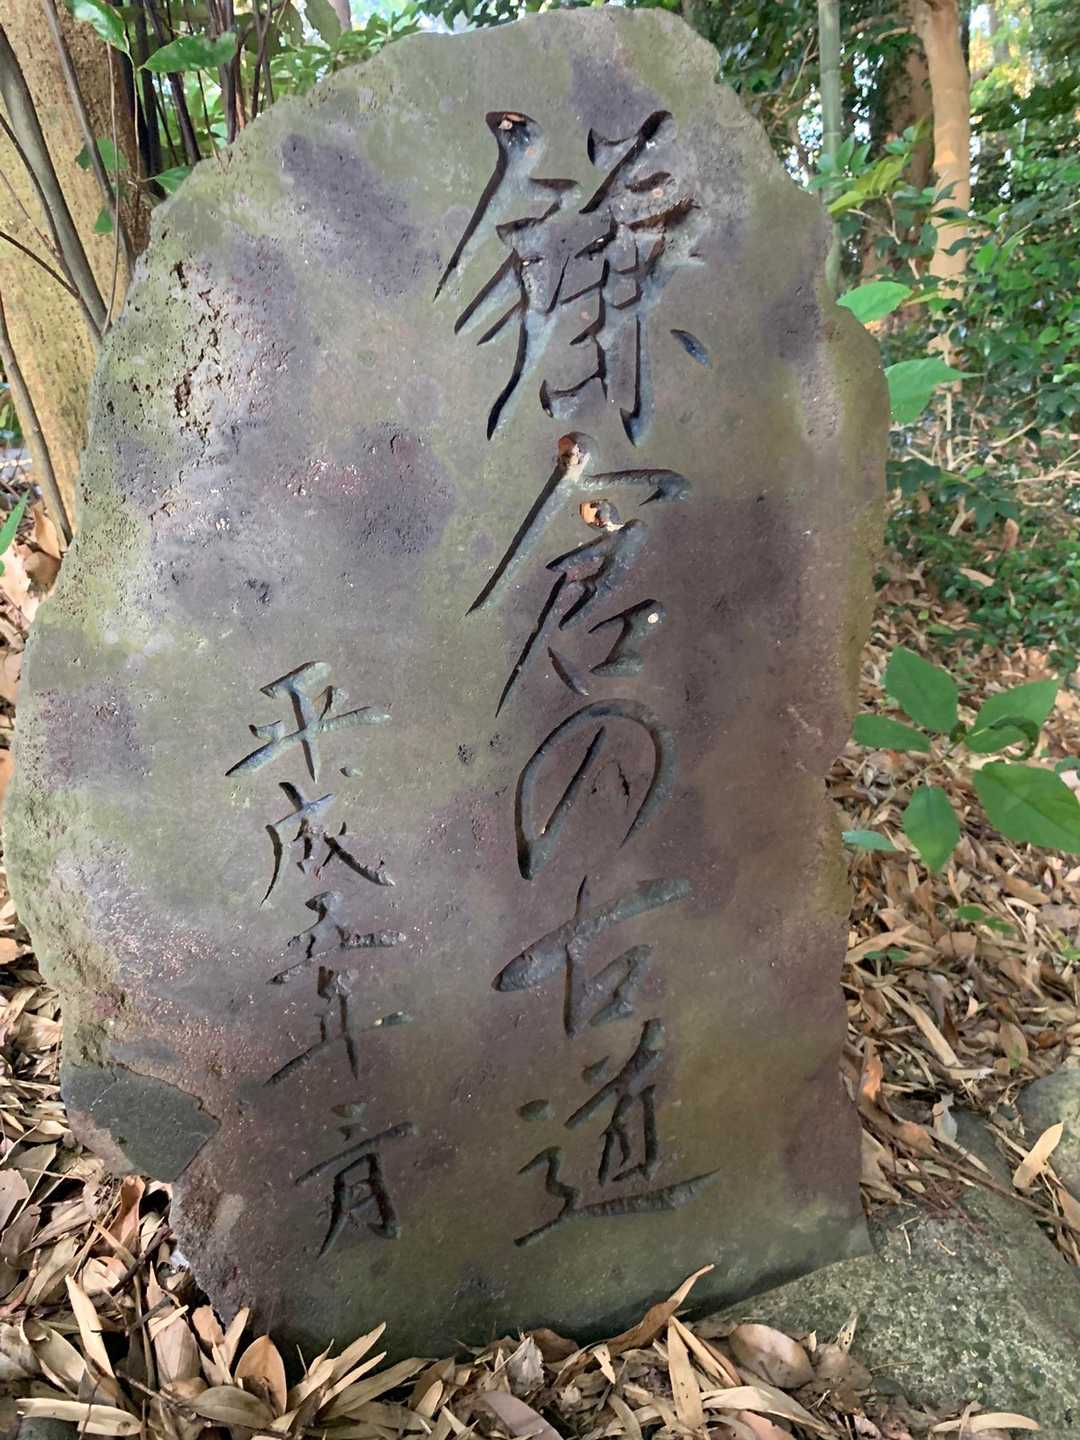 鎌倉の古道
平成五年六月